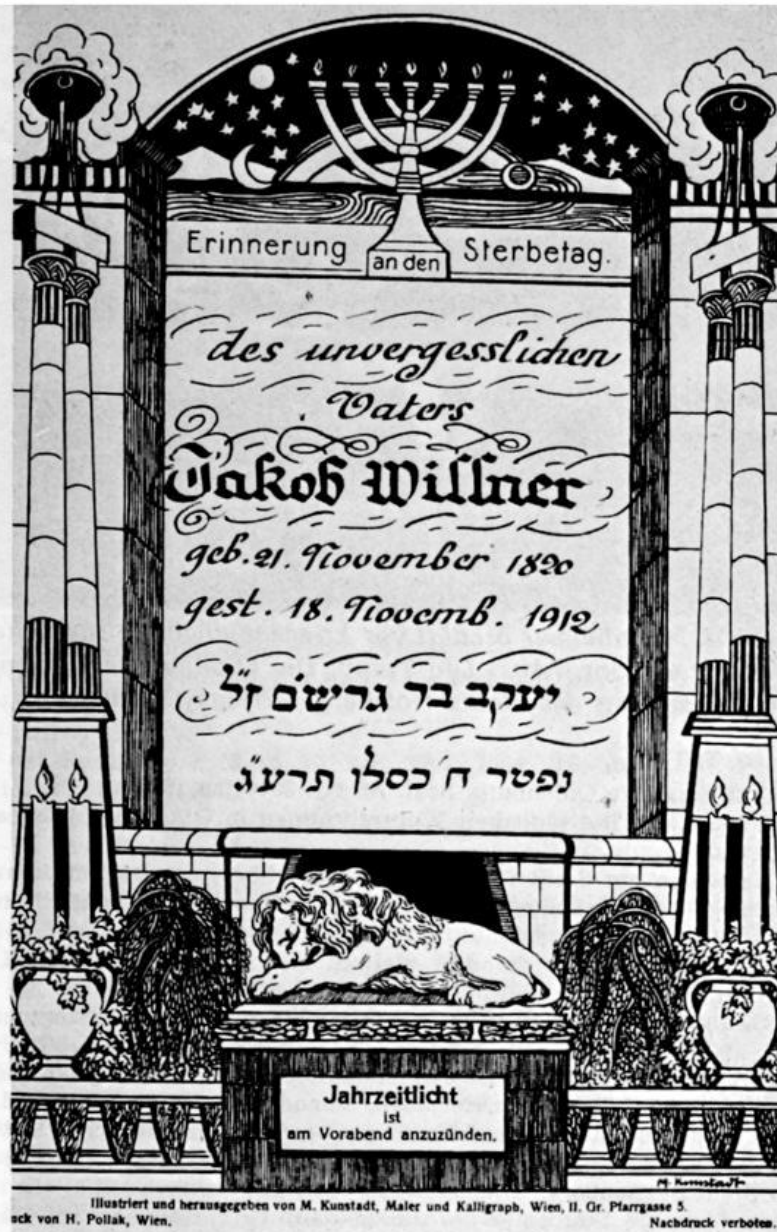 Erinnerung an den Sterbetag.
des unvergesslichen
Vaters
Jakob Willner
geb. 21. November 1820
gest. 18. Novemb. 1912
יעקב בר גרשם ז״ל
נפטר ח כסלו תרע״ג
Jahrzeitlicht
ist
am Vorabend anzuzünden.
M. Kunstadt
Illustriert und herausgegeben von M. Kunstadt, Maler und Kalligraph, Wien, II. Gr. Pfarrgasse 5.
ck von H. Pollak, Wien. Nachdruck verboten